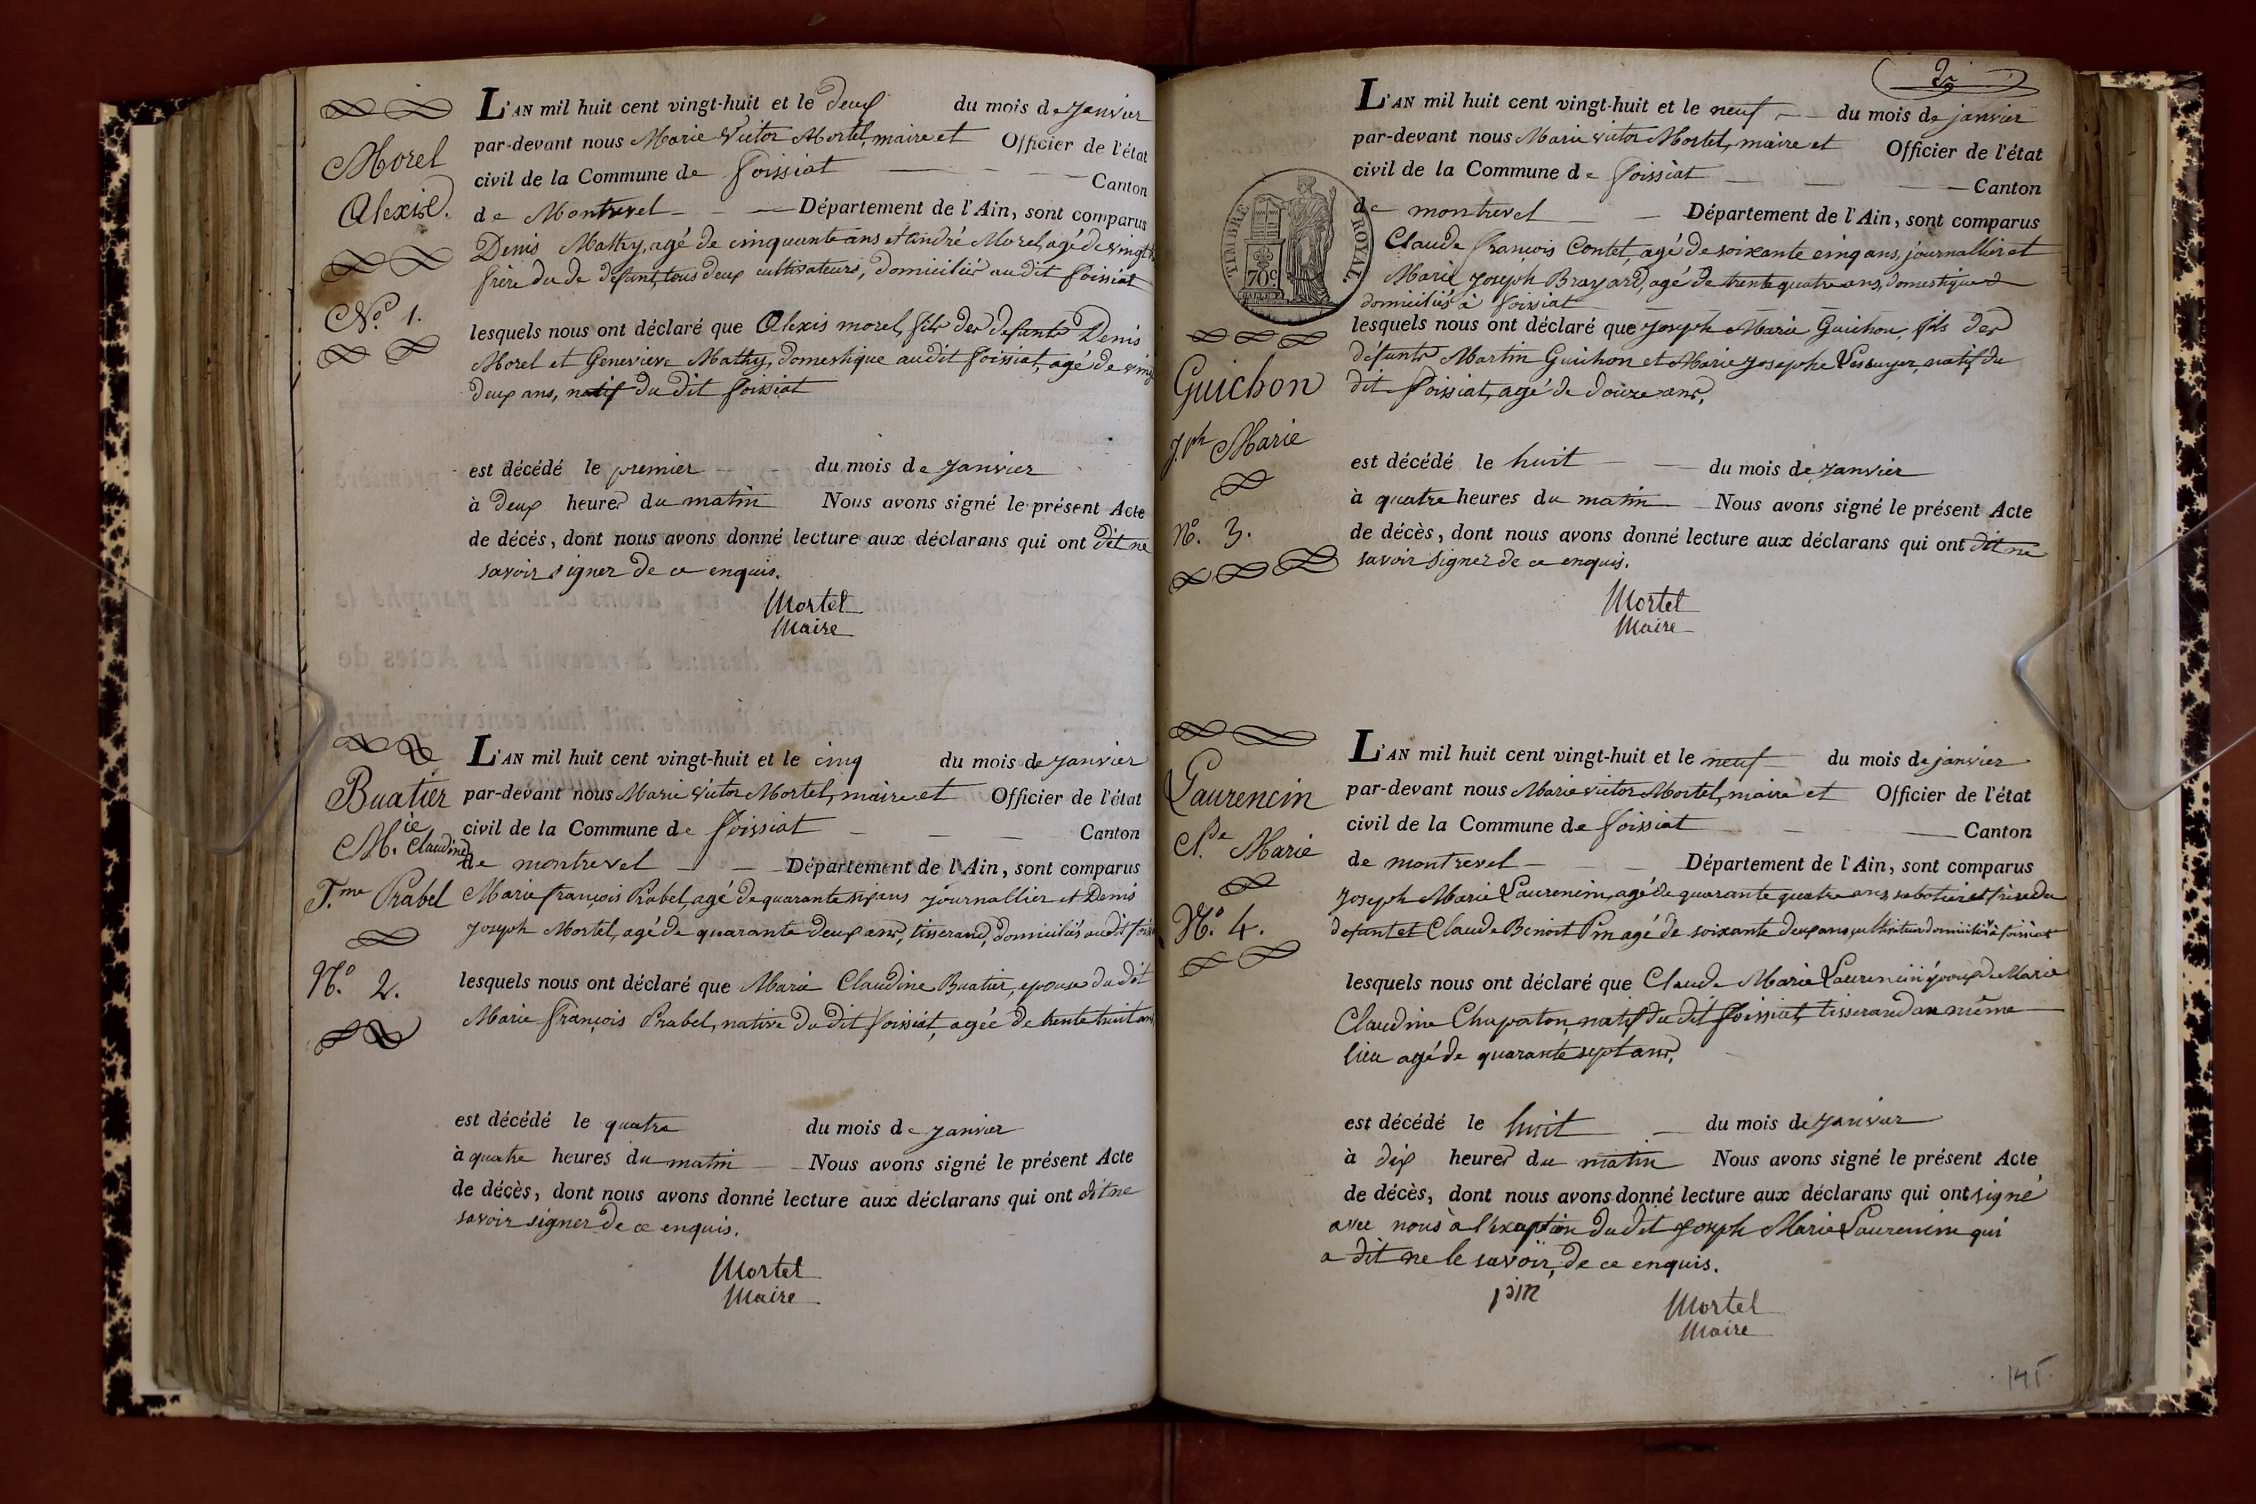 Morel
Alexis.
N.º 1.
L'AN mil huit cent vingt-huit et le deux du mois de janvier
par-devant nous Marie Victor Mortel, maire et Officier de l'état
civil de la Commune de foissiat Canton
de Montrevel Département de l'Ain, sont comparus
Denis Mathy, agé de cinquante ans et andré Morel, agé de vingt
frère du defunt, tous deux cultivateurs, domiciliés au dit foissiat
lesquels nous ont déclaré que Alexis morel, fils des defunts Denis
Morel et Genevieve Mathy, domestique au dit foissiat, agé de
deux ans, natif du dit foissiat
est décédé le premier du mois de janvier
à deux heures du matin Nous avons signé le présent Acte
de décés, dont nous avons donné lecture aux déclarans qui ont dit ne
savoir signer de ce enquis.
Mortel
Maire
Buatier
M.ie Claudine
f.me Rabel
N.º 2.
L'AN mil huit cent vingt-huit et le cinq du mois de janvier
par-devant nous Marie Victor Mortel, maire et Officier de l'état
civil de la Commune de foissiat Canton
de montrevel Département de l'Ain, sont comparus
Marie françois Rabel, agé de quarante six ans journallier et Denis
joseph Mortel, agé de quarante deux ans, tisserand, domiciliés au dit
lesquels nous ont déclaré que Marie Claudine Buatier, epouse du dit
Marie françois Rabel, native du dit foissiat, agée de trente huit ans
est décédé le quatre du mois de janvier
à quatre heures du matin Nous avons signé le présent Acte
de décès, dont nous avons donné lecture aux déclarans qui ont dit ne
savoir signer de ce enquis.
Mortel
Maire
2
TIMBRE ROYAL
70c
Guichon
J.ph Marie
N.º 3.
L'AN mil huit cent vingt-huit et le neuf du mois de janvier
par-devant nous Marie victor Mortel, maire et Officier de l'état
civil de la Commune de foissiat Canton
de montrevel Département de l'Ain, sont comparus
Claude françois Contet, agé de soixante cinq ans, journallier et
Marie joseph Brayard, agé de trente quatre ans, domestique
domiciliés à foissiat
lesquels nous ont déclaré que joseph Marie Guichon, fils des
défunts Martin Guichon et Marie josephe Lescuyer, natif du
dit foissiat, agé de douze ans,
est décédé le huit du mois de janvier
à quatre heures du matin Nous avons signé le présent Acte
de décès, dont nous avons donné lecture aux déclarans qui ont dit ne
savoir signer de ce enquis.
Mortel
Maire
Laurencin
Cl.de Marie
N.º 4.
L'AN mil huit cent vingt-huit et le neuf du mois de janvier
par-devant nous Marie victor Mortel, maire et Officier de l'état
civil de la Commune de foissiat Canton
de montrevel Département de l'Ain, sont comparus
joseph Marie Laurencin, agé de quarante quatre ans, sabotier et frère du
defunt et Claude Benoit Pin agé de soixante deux ans, cultivateur domiciliés à foissiat
lesquels nous ont déclaré que Claude Marie Laurencin époux de Marie
Claudine Chapaton, natif du dit foissiat, tisserand au même
lieu agé de quarante sept ans,
est décédé le huit du mois de janvier
à dix heures du matin Nous avons signé le présent Acte
de décès, dont nous avons donné lecture aux déclarans qui ont signé
avec nous à l'exception du dit joseph Marie Laurencin qui
a dit ne le savoir, de ce enquis.
pin
Mortel
Maire
145